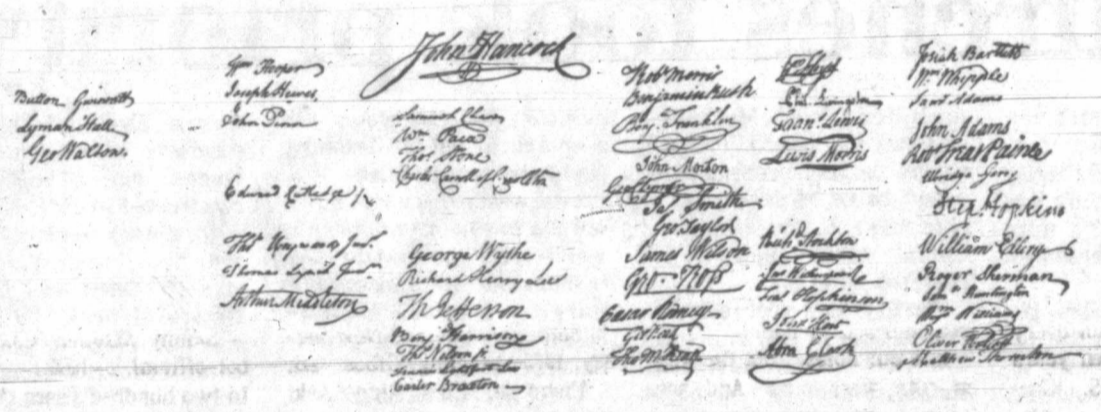 Button Gwinnett
Lyman Hall
Geo Walton.
Wm Hooper
Joseph Hewes,
John Penn
Edward Rutledge
Thos Heyward Junr.
Thomas Lynch Junr.
Arthur Middleton
John Hancock
Samuel Chase
Wm Paca
Thos Stone
Charles Carroll of Carrollton
George Wythe
Richard Henry Lee
Th Jefferson
Benj Harrison
Thos Nelson jr
Francis Lightfoot Lee
Carter Braxton
Robt Morris
Benjamin Rush
Benj Franklin
John Morton
Geo Clymer
Jas Smith
Geo Taylor
James Wilson
Geo Ross
Caesar Rodney
Geo Read
Tho M Kean
Phil Livingston
Frans Lewis
Lewis Morris
Richd Stockton
Jno Witherspoon
Fras Hopkinson
John Hart
Abra Clark
Josiah Bartlett
Wm Whipple
Saml Adams
John Adams
Robt Treat Paine
Elbridge Gerry
Step Hopkins
William Ellery
Roger Sherman
Saml Huntington
Wm Williams
Oliver Wolcott
Matthew Thornton